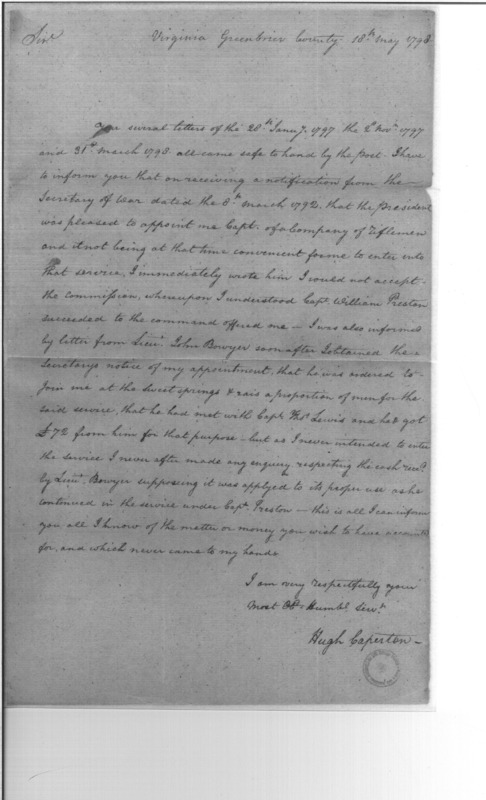 Sir Virginia Greenbrier County 18th May 1798
Your several letters of the 20th Janry. 1797. the 2d Novr. 1797
and 31st March 1798 all came safe to hand by the post. I have
to inform you that on receiving a notification from the
Secretary of War dated the 8th March 1792, that the President
was pleased to appoint me Capt. of a Company of Riflemen
and it not being at that time convenient for me to enter into
that service, I immediately wrote him I would not accept
the commission, whereupon I understood Capt. William Preston
succeeded to the command offered me — I was also informed
by letter from Lieut. John Bowyer soon after I obtained the
Secretarys notice of my appointment, that he was ordered to
Join me at the Sweet springs & rais a proportion of men for the
said service, that he had met with Capt. Ths. Lewis and had got
£72 from him for that purpose — but as I never intended to enter
the service I never after made any enquiry respecting the cash recd.
by Lieut. Bowyer supposing it was applyed to its proper use as he
continued in the service under Capt. Preston — this is all I can inform
you, all I know of the matter or money you wish to have accounted
for, and which never came to my hands.
I am very respectfully your
most Ob. Humbl. Servt.
Hugh Caperton —